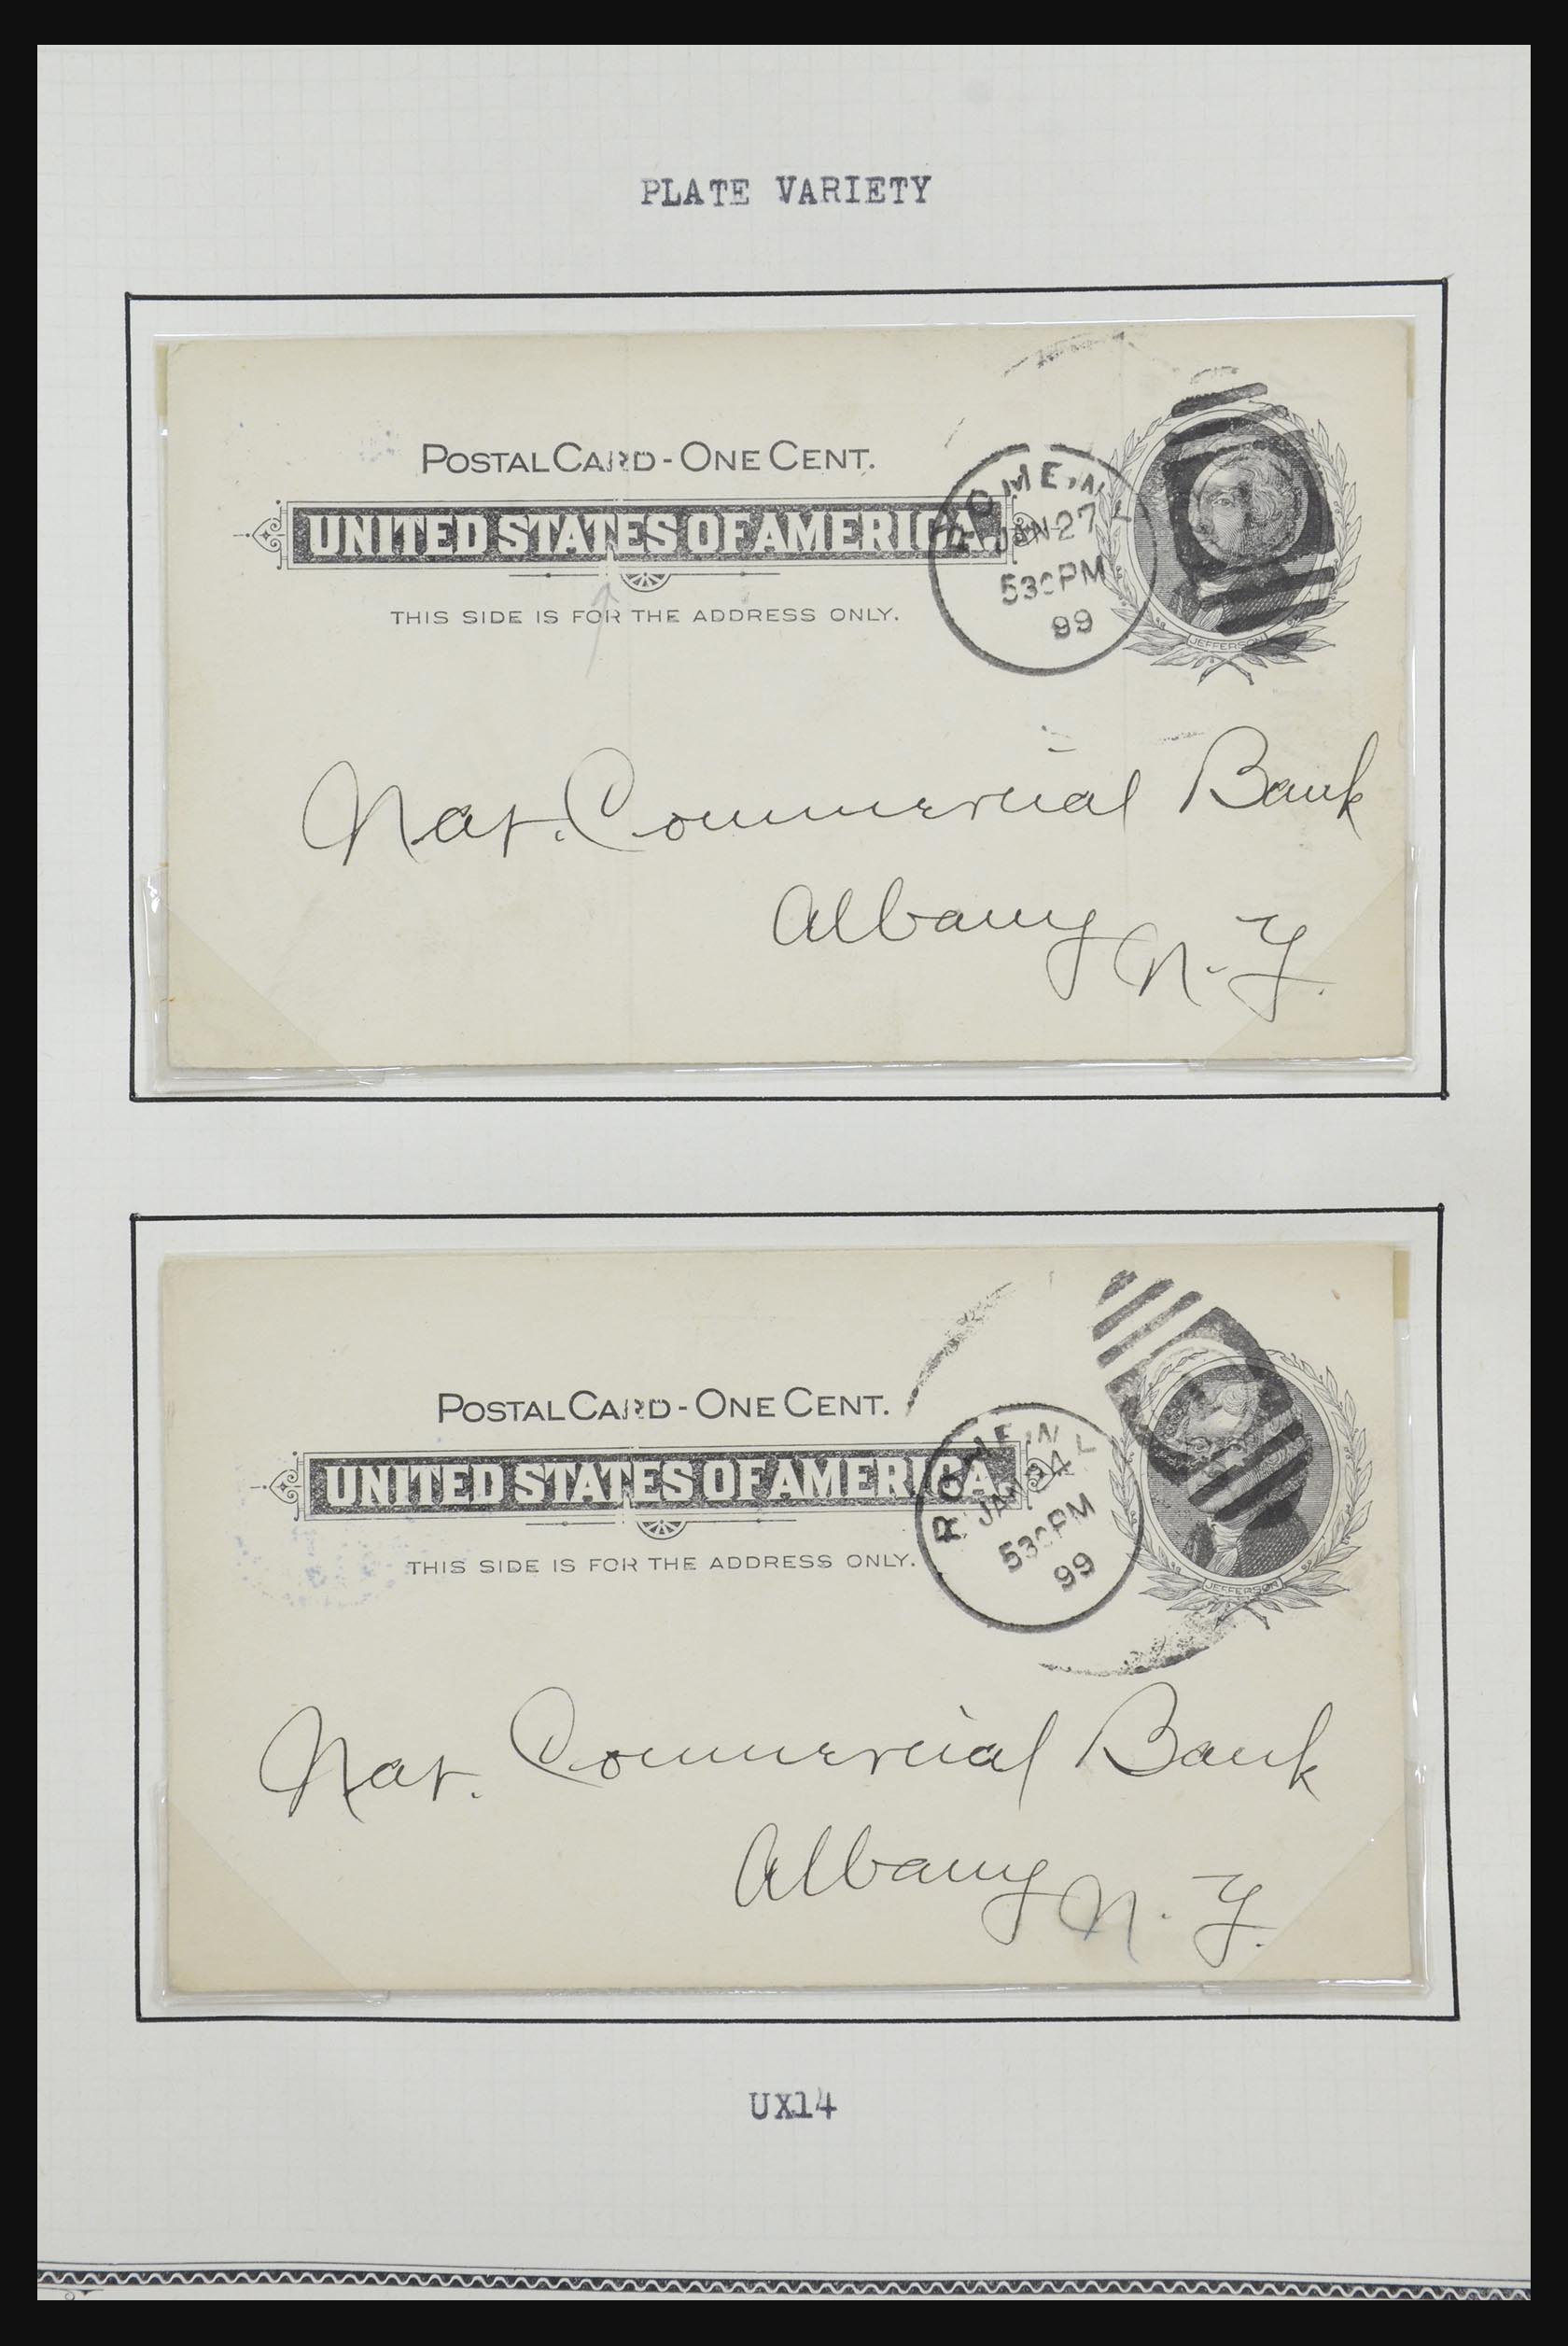 PLATE VARIETY
POSTAL CARD - ONE CENT.
UNITED STATES OF AMERICA.
THIS SIDE IS FOR THE ADDRESS ONLY.
ROME, N Y
JAN 27
530 PM
99
JEFFERSON
Nat. Commercial Bank
Albany N. Y.
POSTAL CARD - ONE CENT.
UNITED STATES OF AMERICA.
THIS SIDE IS FOR THE ADDRESS ONLY.
ROME, N Y
JAN 24
530 PM
99
JEFFERSON
Nat. Commercial Bank
Albany N. Y.
UX14